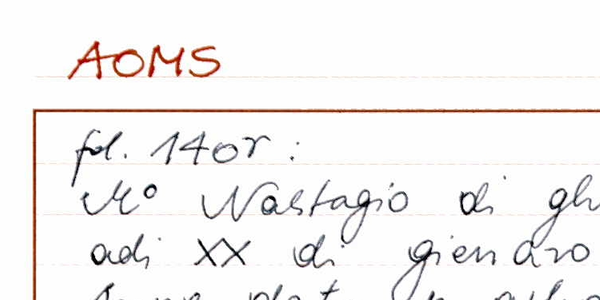 AOMS
fol. 140r:
Mº Nastagio di
adi XX di gienaro